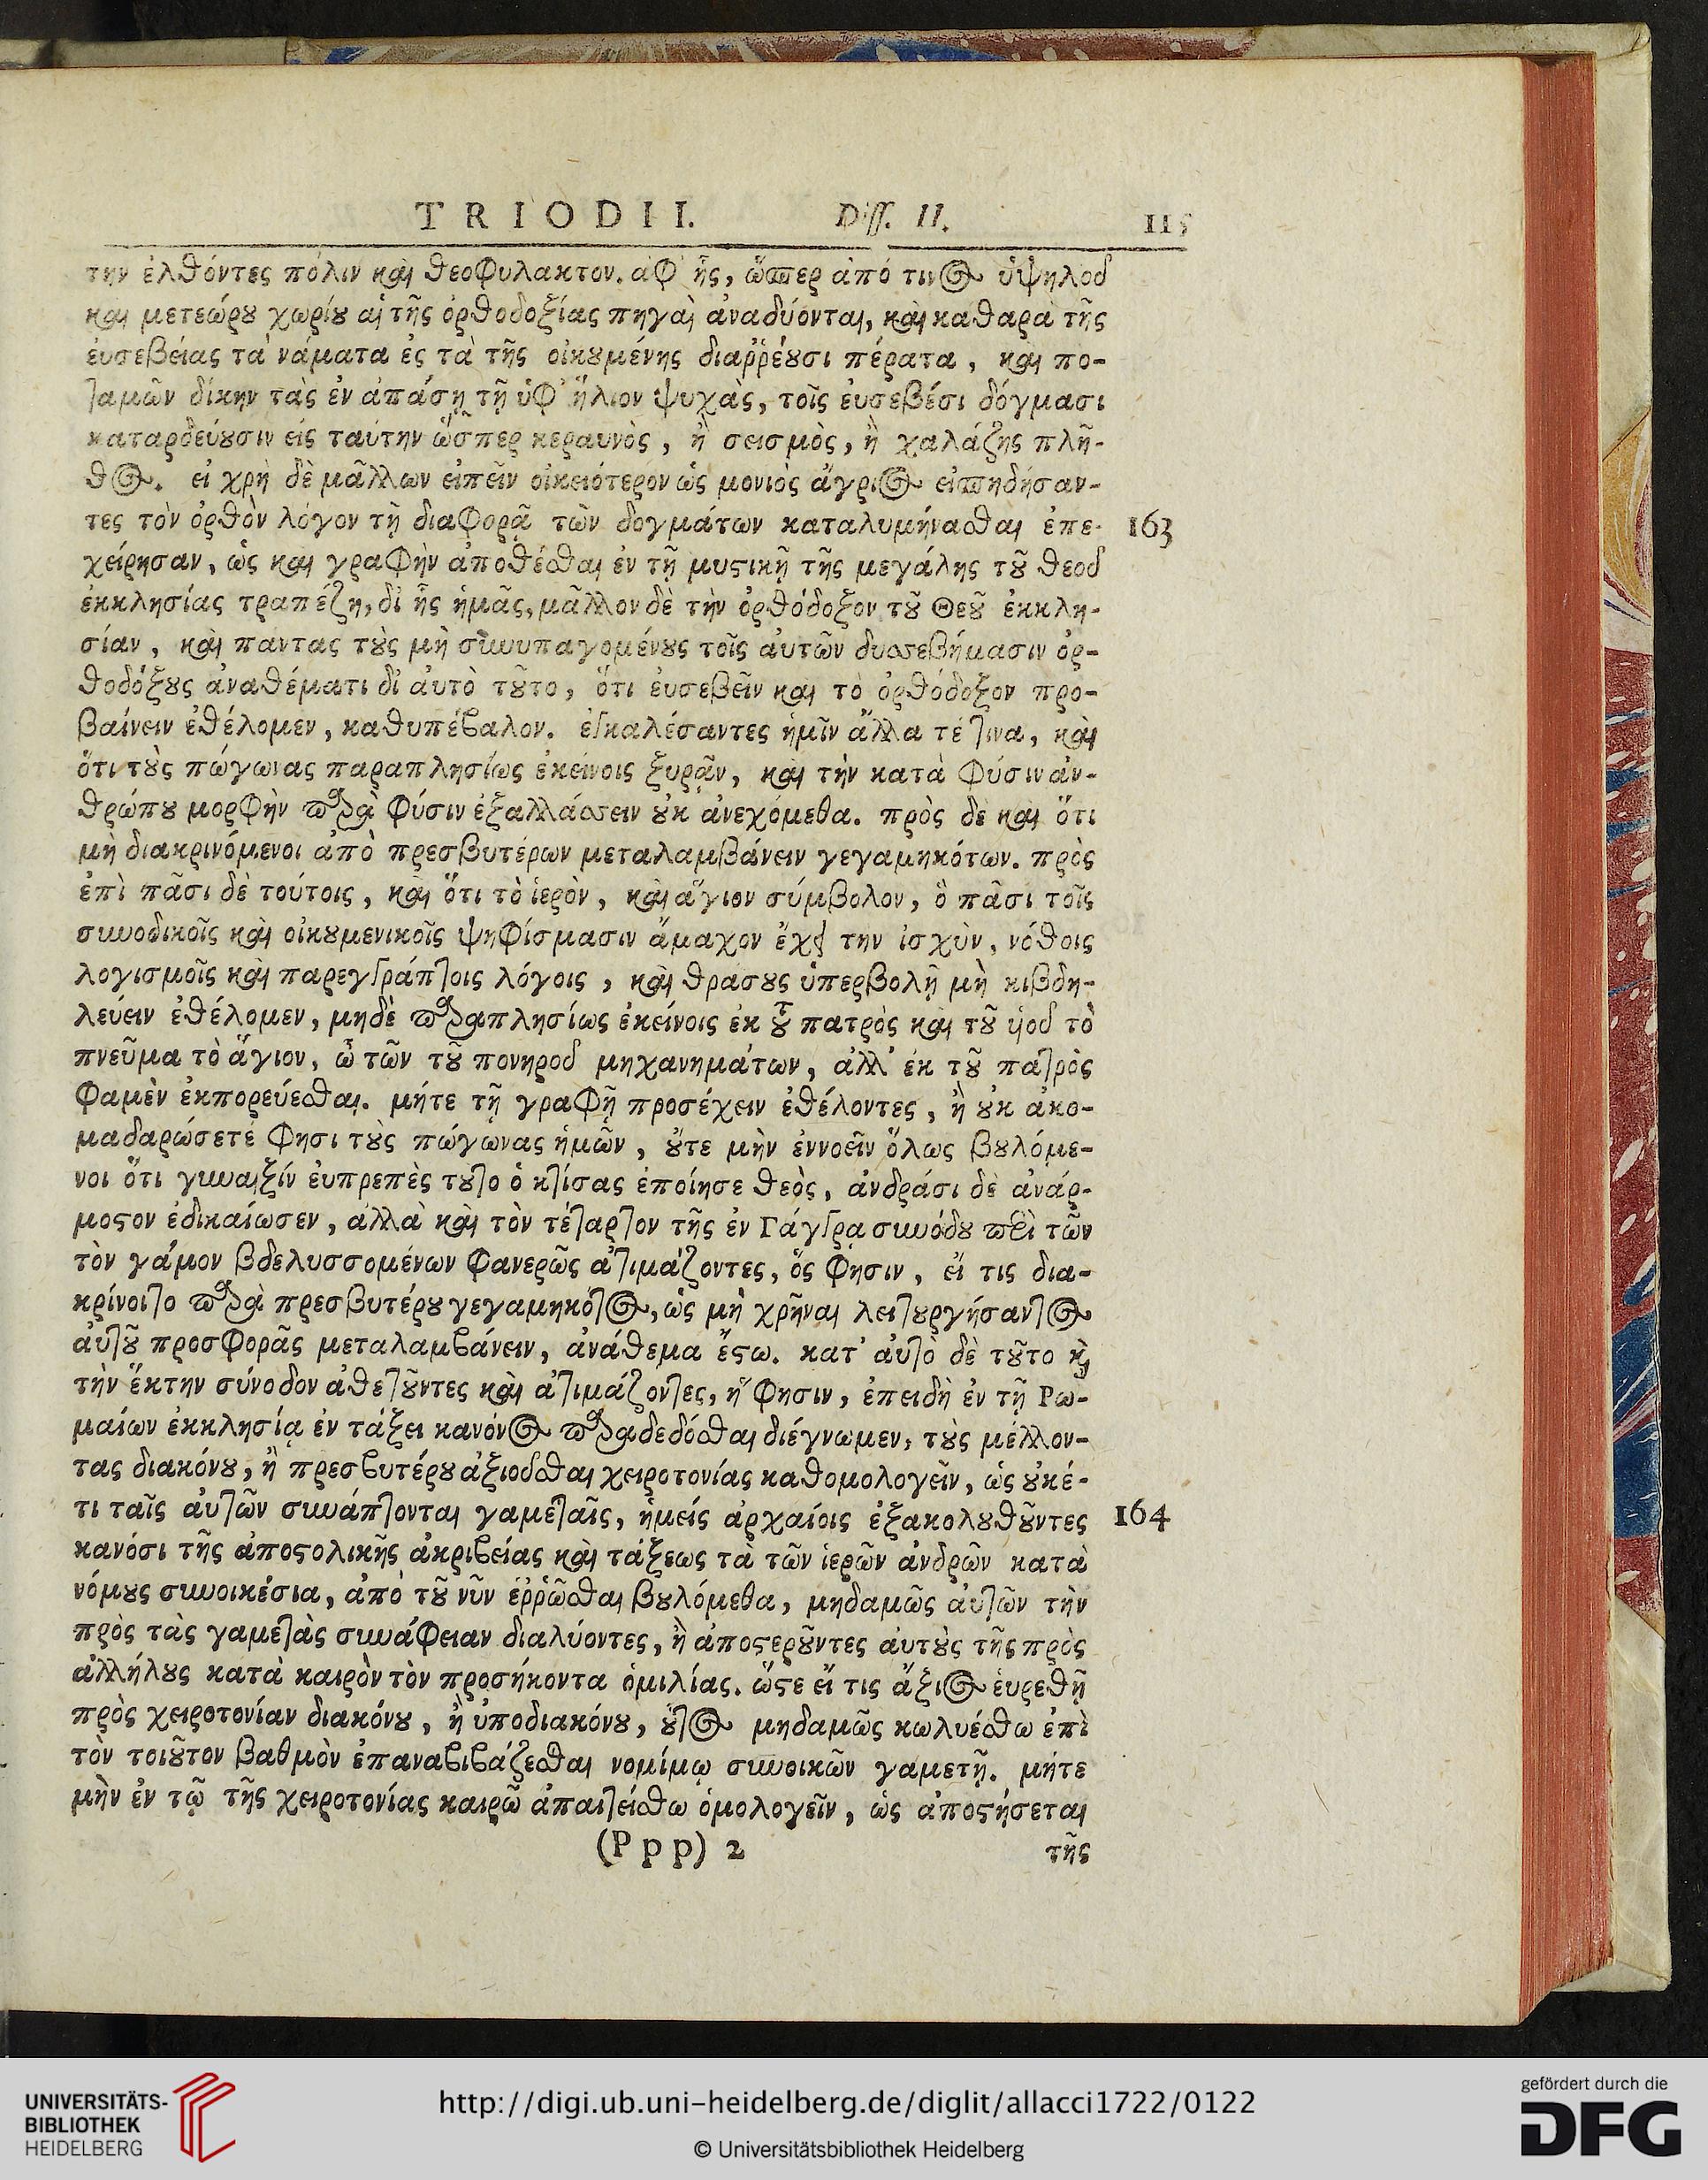 TRIODII. Diss. II. 115
την ἐλθόντες πόλιν καὶ θεοφυλακτον. ἀφ' ἧς, ὥσπερ ἀπό τινος ὑψηλοῦ
καὶ μετεώρου χωρίου αἱ τῆς ὀρθοδοξίας πηγαὶ ἀναδύονται, καὶ καθαρὰ τῆς
ἐυσεβείας τὰ νάματα ἐς τὰ τῆς οἰκουμένης διαῤῥέουσι πέρατα, καὶ πο-
ταμῶν δίκην τὰς ἐν ἁπάσῃ τῇ ὑφ' ἥλιον ψυχὰς, τοῖς ἐυσεβέσι δόγμασι
καταρδεύουσιν εἰς ταύτην ὥσπερ κεραυνὸς, ἢ σεισμὸς, ἢ χαλάζης πλῆ-
θος. εἰ χρὴ δὲ μᾶλλων εἰπεῖν οἰκειότερον ὡς μονιὸς ἄγριος εἰσπηδήσαν-
τες τὸν ὀρθὸν λόγον τῇ διαφορᾷ τῶν δογμάτων καταλυμήνασθαι ἐπε- 163
χείρησαν, ὡς καὶ γραφὴν ἀποθέσθαι ἐν τῇ μυστικῇ τῆς μεγάλης τοῦ θεοῦ
ἐκκλησίας τραπέζῃ, δι' ἧς ἡμᾶς, μᾶλλον δὲ τὴν ὀρθόδοξον τοῦ Θεοῦ ἐκκλη-
σίαν, καὶ παντας τοὺς μὴ συνυπαγομένους τοῖς ἀυτῶν δυσσεβήμασιν ὀρ-
θοδόξους ἀναθέματι δι' ἀυτὸ τοῦτο, ὅτι ἐυσεβεῖν καὶ τὸ ὀρθόδοξον προ-
βαίνειν ἐθέλομεν, καθυπέβαλον. ἐγκαλέσαντες ἡμῖν ἄλλα τέ τινα, καὶ
ὅτι τοὺς πώγωνας παραπλησίως ἐκείνοις ξυρᾷν, καὶ τὴν κατὰ φύσιν ἀν-
θρώπου μορφὴν παρὰ φύσιν ἐξαλλάσσειν οὐκ ἀνεχόμεθα. πρὸς δὲ καὶ ὅτι
μὴ διακρινόμενοι ἀπὸ πρεσβυτέρων μεταλαμβάνειν γεγαμηκότων. πρὸς
ἐπὶ πᾶσι δὲ τούτοις, καὶ ὅτι τὸ ἱερὸν, καὶ ἅγιον σύμβολον, ὃ πᾶσι τοῖς
συνοδικοῖς καὶ οἰκουμενικοῖς ψηφίσμασιν ἄμαχον ἔχει την ἰσχὺν, νόθοις
λογισμοῖς καὶ παρεγγράπτοις λόγοις, καὶ θράσους ὑπερβολῇ μὴ κιβδη-
λεύειν ἐθέλομεν, μηδὲ παραπλησίως ἐκείνοις ἐκ τοῦ πατρὸς καὶ τοῦ υἱοῦ τὸ
πνεῦμα τὸ ἅγιον, ὦ τῶν τοῦ πονηροῦ μηχανημάτων, ἀλλ' ἐκ τοῦ πατρὸς
φαμὲν ἐκπορεύεσθαι. μήτε τῇ γραφῇ προσέχειν ἐθέλοντες, ἢ οὐκ ἀκο-
μαδαρώσετέ φησι τοὺς πώγωνας ἡμῶν, οὔτε μὴν ἐννοεῖν ὅλως βουλόμε-
νοι ὅτι γυναιξίν ἐυπρεπὲς τοῦτο ὁ κτίσας ἐποίησε θεὸς, ἀνδράσι δὲ ἀνάρ-
μοστον ἐδικαίωσεν, ἀλλὰ καὶ τὸν τέταρτον τῆς ἐν Γάγγρᾳ συνόδου περὶ τῶν
τὸν γάμον βδελυσσομένων φανερῶς ἀτιμάζοντες, ὅς φησιν, εἴ τις δια-
κρίνοιτο παρὰ πρεσβυτέρου γεγαμηκότος, ὡς μὴ χρῆναι λειτουργήσαντος
ἀυτοῦ προσφορᾶς μεταλαμβάνειν, ἀνάθεμα ἔστω. κατ' ἀυτὸ δὲ τοῦτο καὶ
τὴν ἕκτην σύνοδον ἀθετοῦντες καὶ ἀτιμάζοντες, ἥ φησιν, ἐπειδὴ ἐν τῇ Ρω-
μαίων ἐκκλησίᾳ ἐν τάξει κανόνος παραδεδόσθαι διέγνωμεν, τοὺς μέλλον-
τας διακόνου, ἢ πρεσβυτέρου ἀξιοῦσθαι χειροτονίας καθομολογεῖν, ὡς οὐκέ-
τι ταῖς ἀυτῶν συνάπτονται γαμεταῖς, ἡμεῖς ἀρχαίοις ἐξακολουθοῦντες 164
κανόσι τῆς ἀποστολικῆς ἀκριβείας καὶ τάξεως τὰ τῶν ἱερῶν ἀνδρῶν κατὰ
νόμους συνοικέσια, ἀπὸ τοῦ νῦν ἐῤῥῶσθαι βουλόμεθα, μηδαμῶς ἀυτῶν τὴν
πρὸς τὰς γαμετὰς συνάφειαν διαλύοντες, ἢ ἀποστεροῦντες ἀυτοὺς τῆς πρὸς
ἀλλήλους κατὰ καιρὸν τὸν προσήκοντα ὁμιλίας. ὥστε εἴ τις ἄξιος ἑυρεθῇ
πρὸς χειροτονίαν διακόνου, ἢ ὑποδιακόνου, οὗτος μηδαμῶς κωλυέσθω ἐπὶ
τὸν τοιοῦτον βαθμὸν ἐπαναβιβάζεσθαι νομίμῳ συνοικῶν γαμετῇ. μήτε
μὴν ἐν τῷ τῆς χειροτονίας καιρῷ ἀπαιτείσθω ὁμολογεῖν, ὡς ἀποστήσεται
(Ppp) 2 τῆς
UNIVERSITÄTS-
BIBLIOTHEK
HEIDELBERG
http://digi.ub.uni-heidelberg.de/diglit/allacci1722/0122
© Universitätsbibliothek Heidelberg
gefördert durch die
DFG